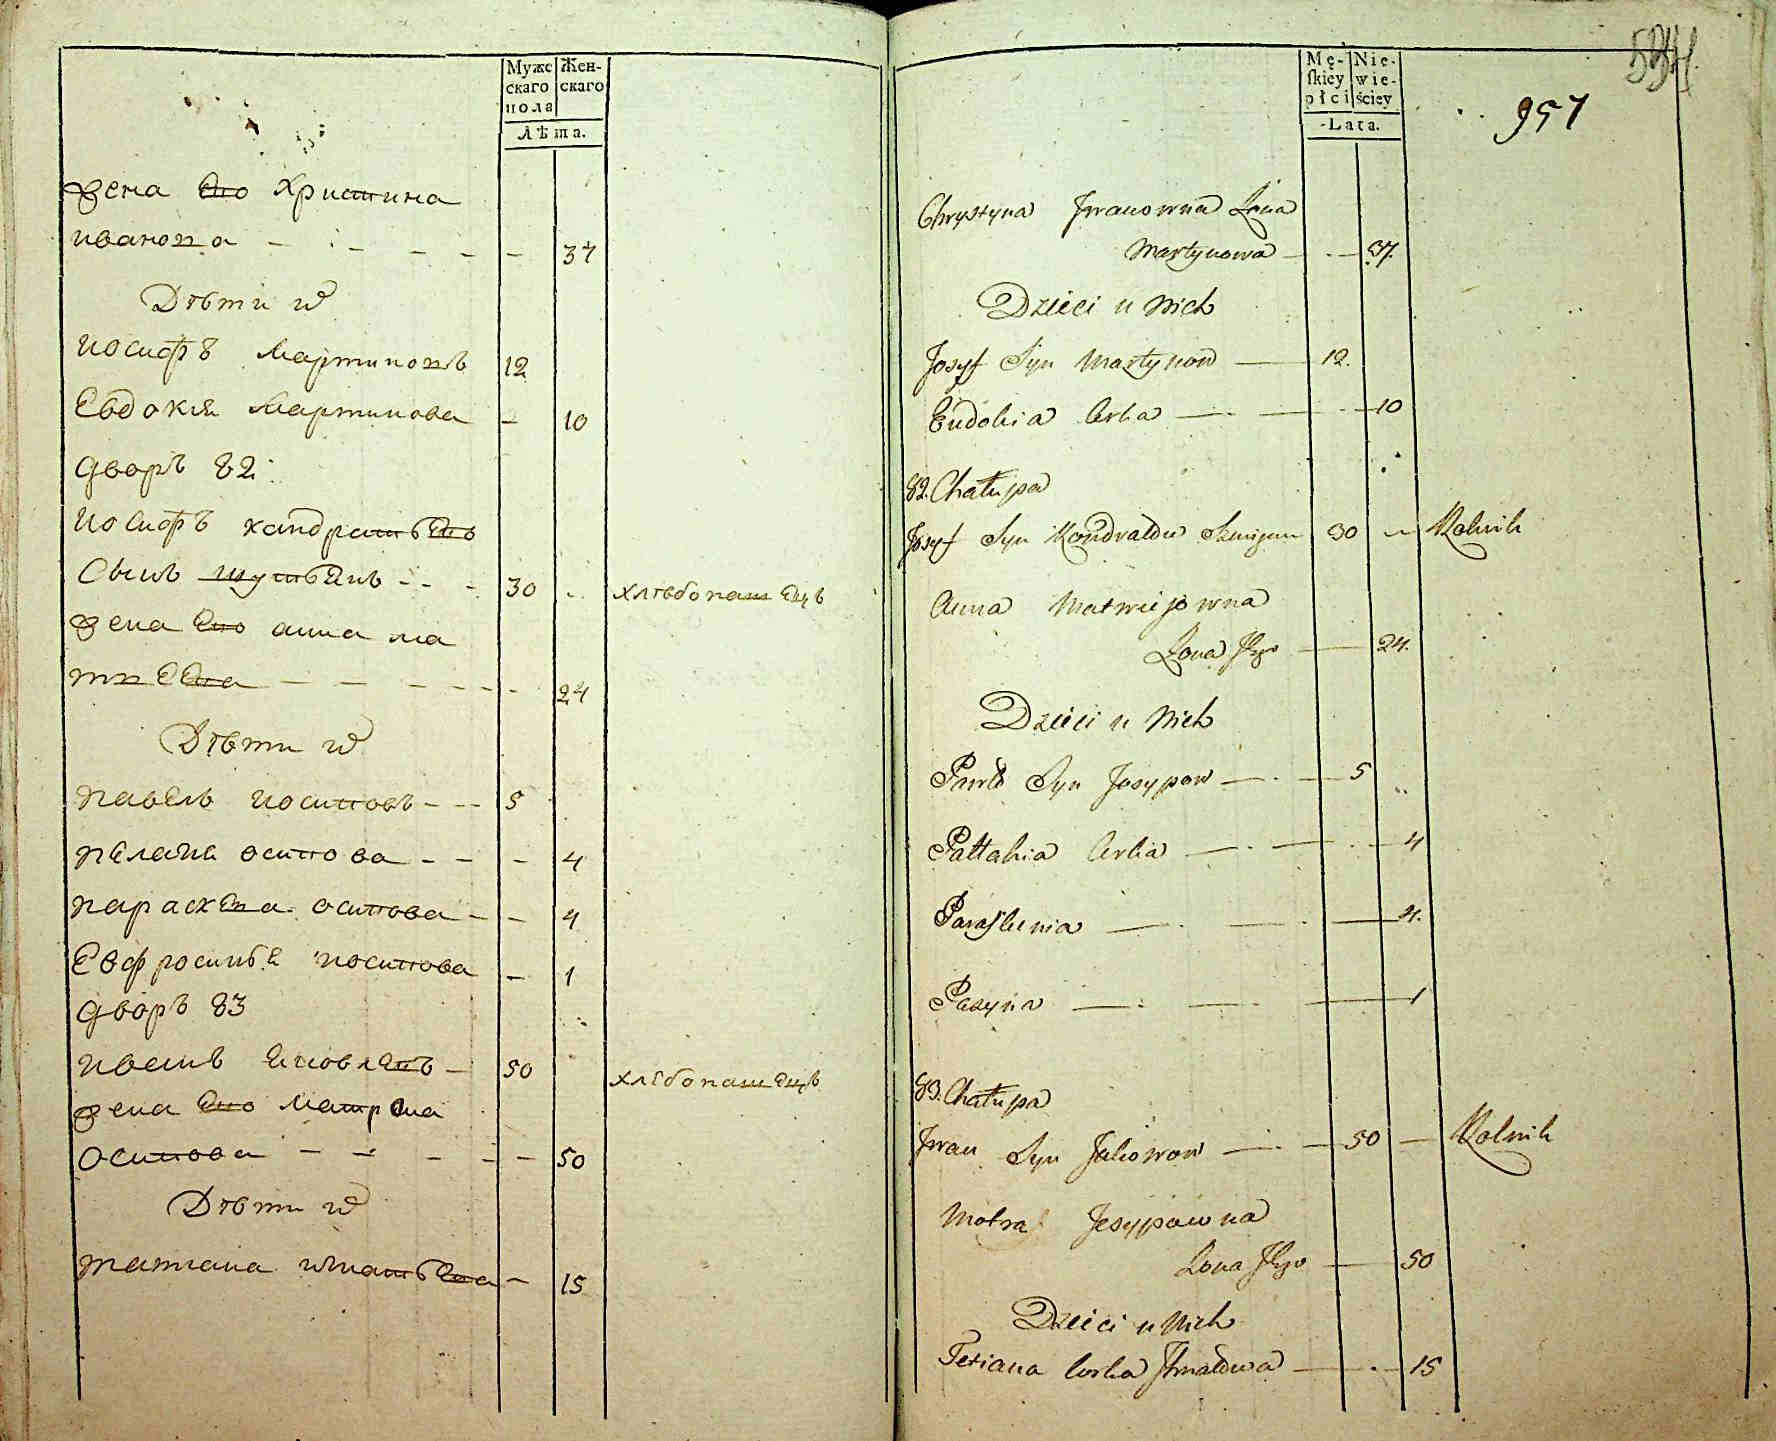 Муже
скаго
пола
Жен-
скаго
Лѣта.
жена Его Христина
иванова - - - - - 37
Дѣти их
иосифъ Мартиновъ 12
Евдокия Мартинова - 10
дворъ 82
иосифъ кандратьевъ
Сынъ - - 30 - хлѣбопашецъ
жена Его анна ма
твеева - - - - - 24
Дѣти их
павелъ иосиповъ - - 5
пелагия осипова - - - 4
параскева осипова - - 4
Евфросинья иосипова - 1
дворъ 83
иванъ Яковлевъ - 50 хлебопашецъ
жена Его Матрона
осипова - - - - - 50
Дѣти их
татиана игнатьева - 15
Mę-
skiey
płci
Nie-
wie-
ściey
Lata.
534
957
Chrystyna Jwanowna Zona
Martynowa - - 37.
Dzieci u Nich
Josyf Syn Martynow — 12.
Eudokia Corka — 10
82. Chałupa
Josyf Syn Kondratow 30 - Rolnik
Anna Matwiejowna
Zona Jego — 24.
Dzieci u Nich
Pawło Syn Josypow — 5
Pałłahia Corka — 4
Paraskewia — 4.
1
83. Chałupa
Jwan Syn Jakowow — 50 — Rolnik
Motra Jesypowna
Zona Jego — 50
Dzieci u Nich
Tetiana Corka — 15